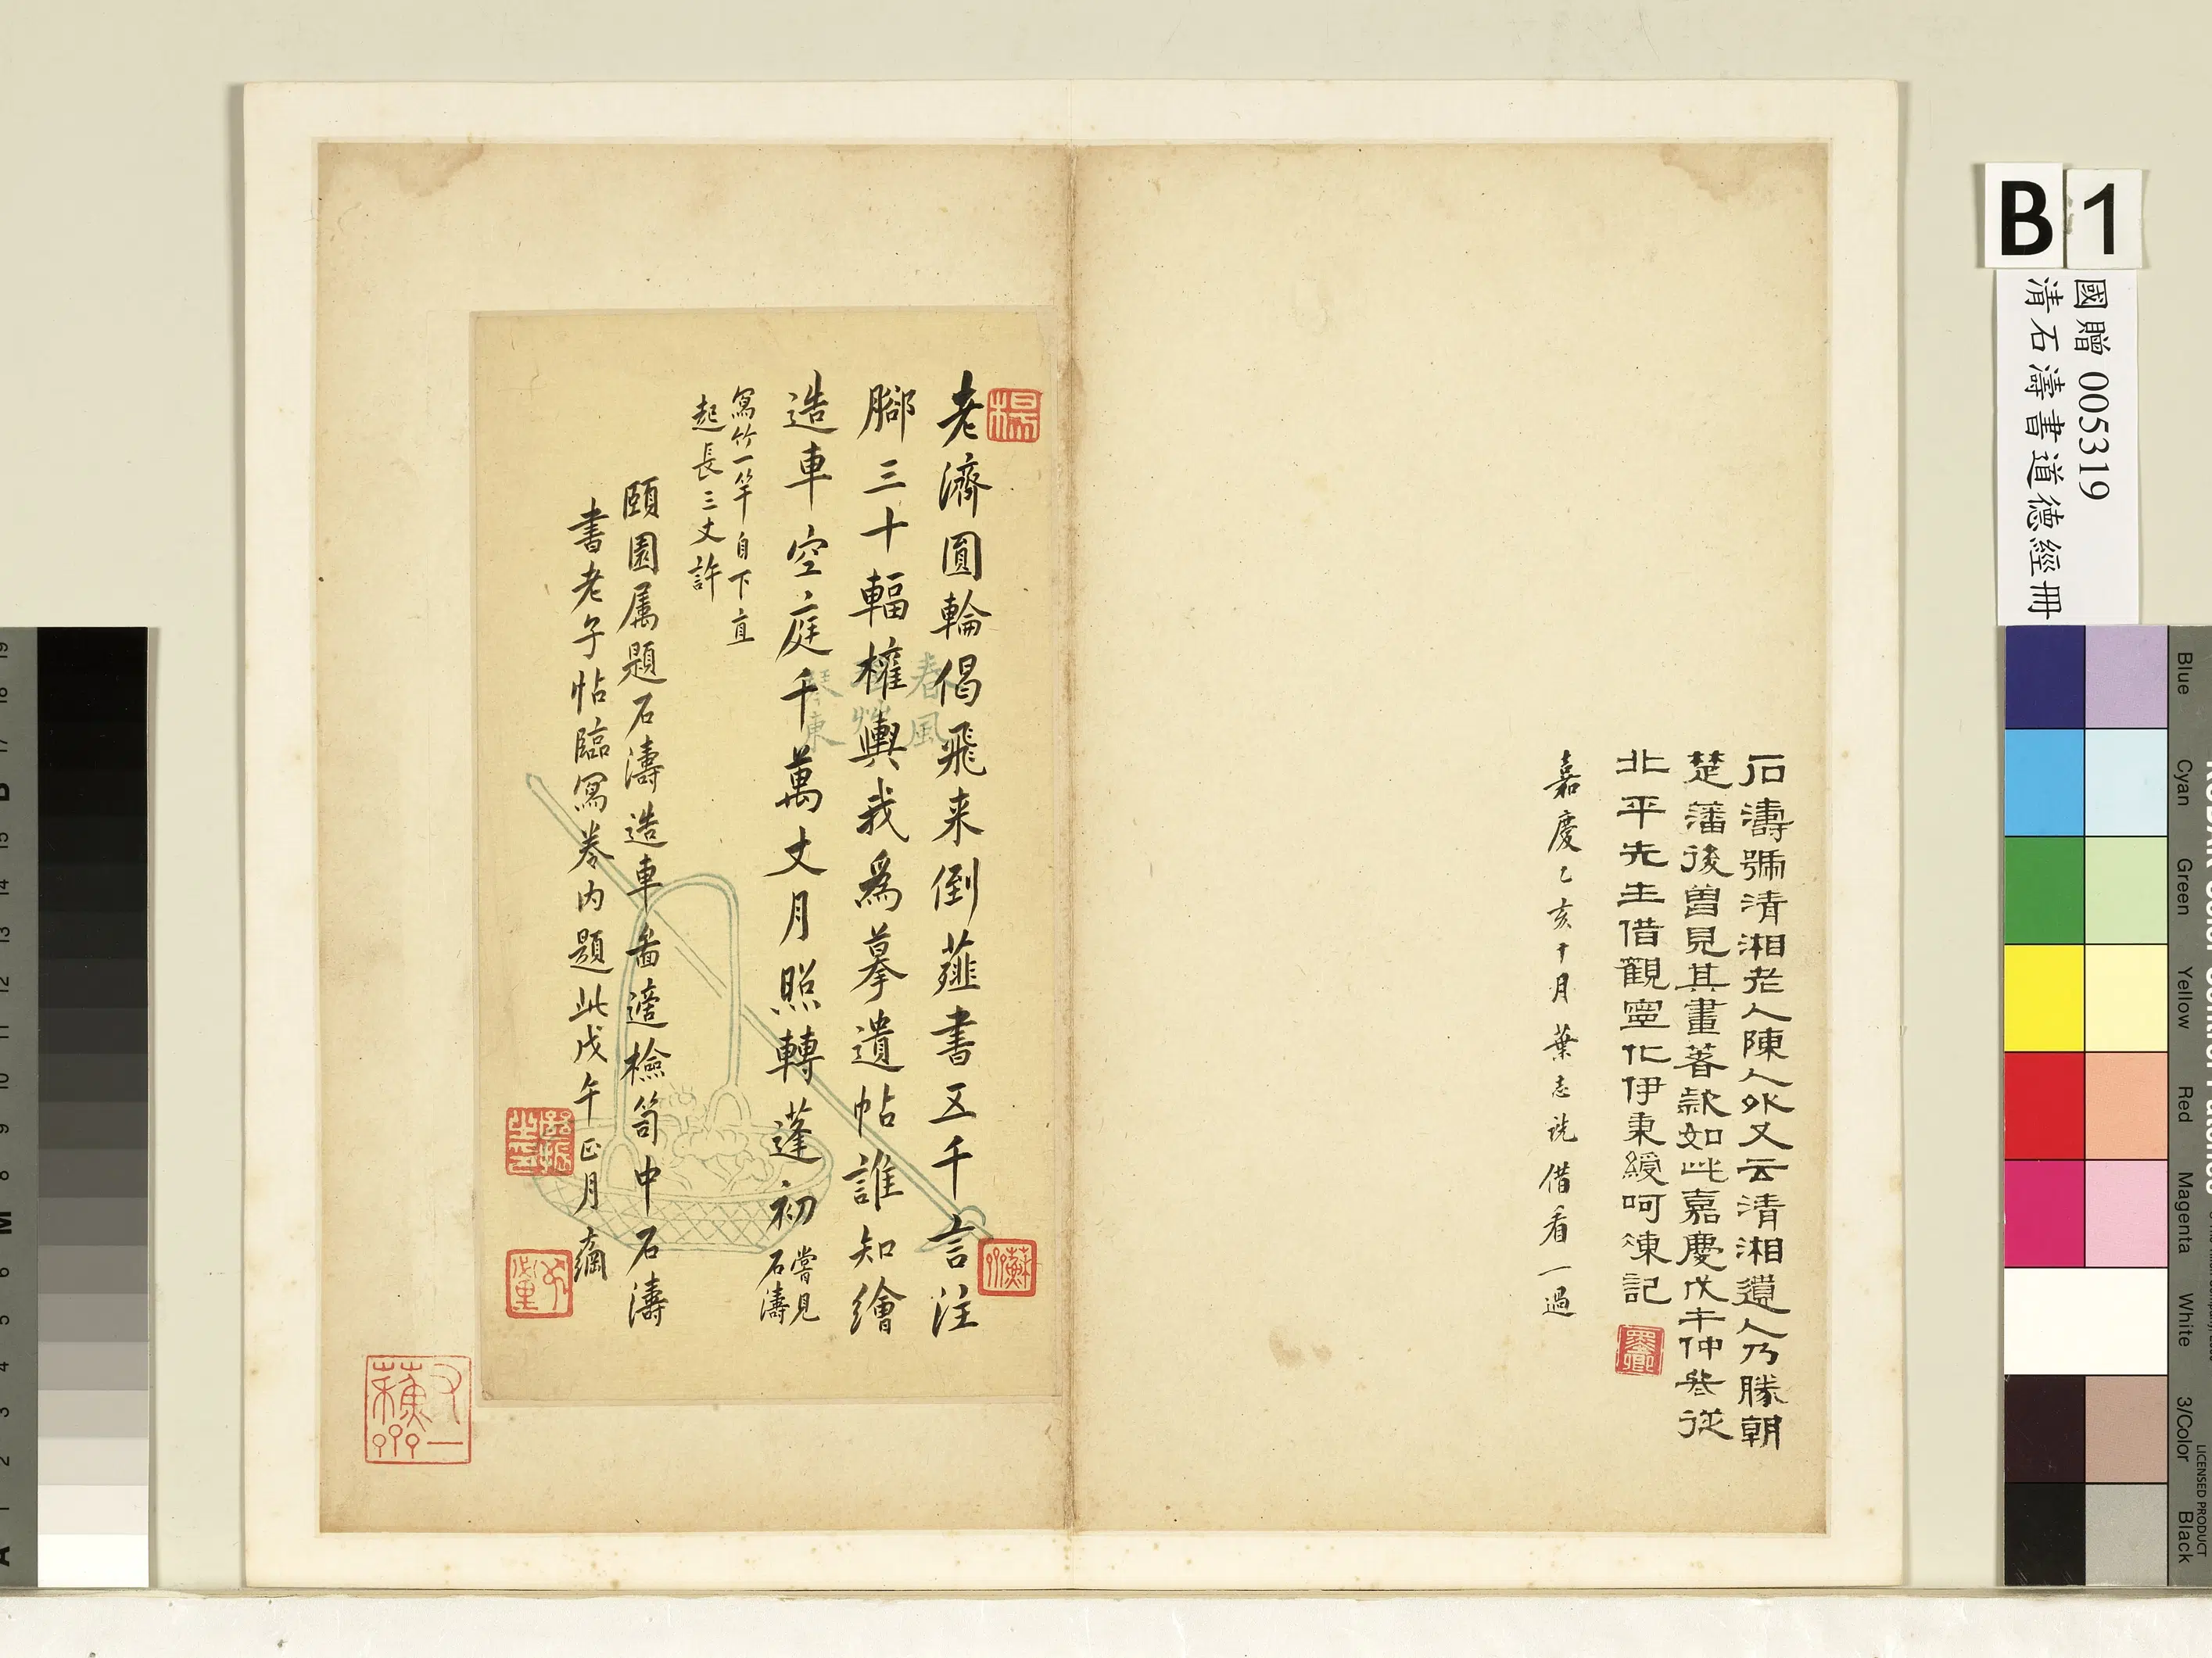 石濤號清湘老人陳人外又云清湘遺人乃勝朝
楚藩後曾見其畫著款如此嘉慶戊午仲冬從
北平先生借觀寧化伊秉綬呵凍記
墨卿
嘉慶乙亥十月葉志詵借看一過
楊
老濟圓輪偈飛来倒薤書五千言注
腳三十輻權輿我為摹遺帖誰知繪
造車空庭千萬丈月照轉蓬初
嘗見
石濤
寫竹一竿自下直
起長三丈許
頤園属題石濤造車啚適檢笥中石濤
書老子帖臨寫卷内題此戊午正月綱
春風
蘇
國贈 005319
清石濤書道德經冊
B 1
Blue
Cyan
Green
Yellow
Red
Magenta
White
3/Color
Black
LICENSED PRODUCT
A 1 2 3 4 5 6 M 8 9 10 11 12 13 14 15 B 17 18 19